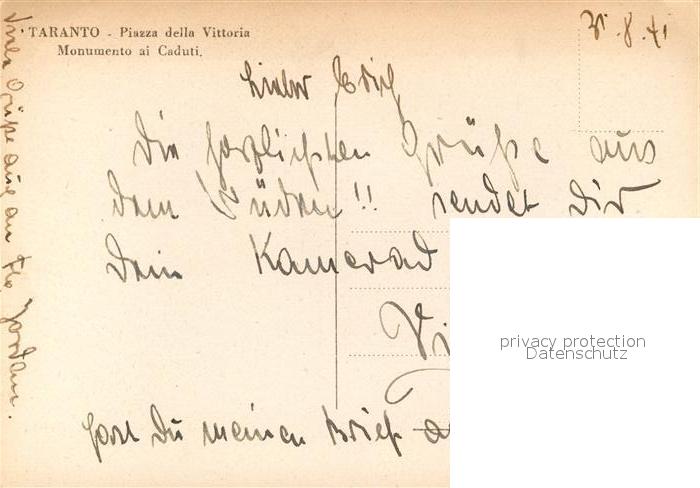 TARANTO - Piazza della Vittoria
Monumento ai Caduti.
8.41
Lieber Erich
Die herzlichsten Grüße aus
dem Süden!! sendet Dir
Dein Kamerad
Vi
Hast Du meinen Brief
Viele Grüße auch an Frl. Jordan.
privacy protection
Datenschutz